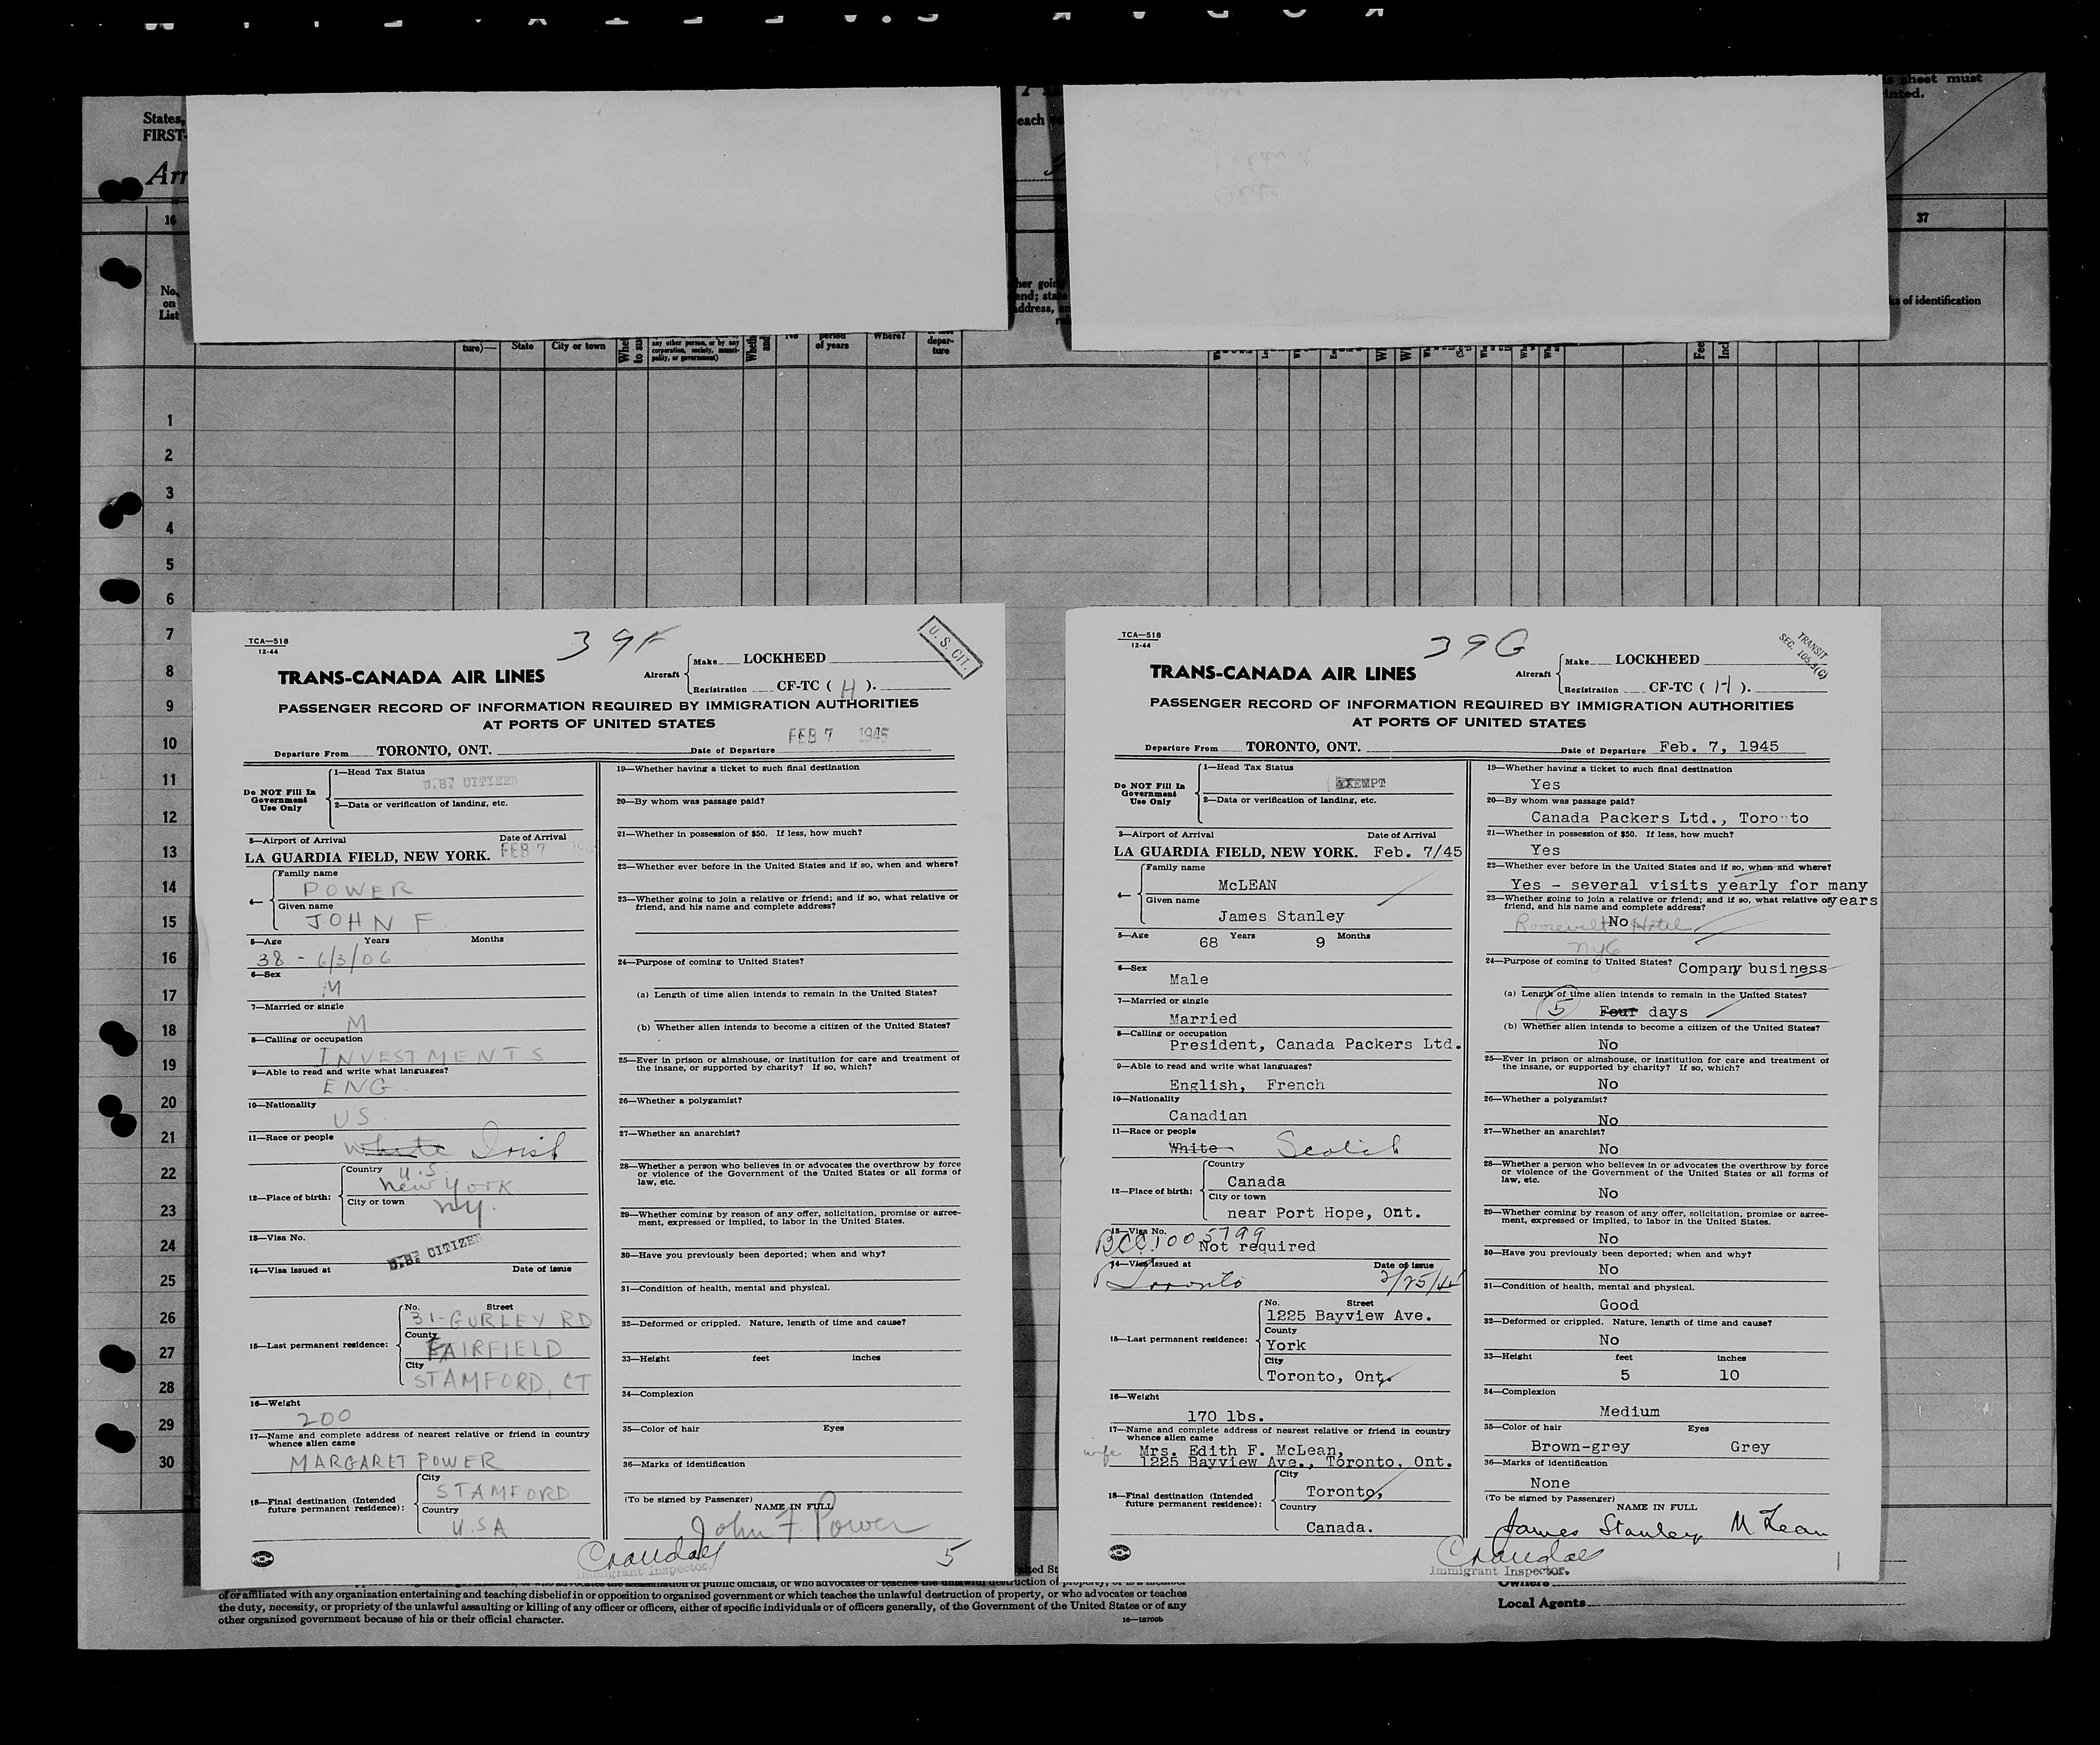 States,
FIRST-
Arr
each
sheet must
inted.
16
37
No.
on
List
her goin
end; stat
address, an
ks of identification
ture)—
State
City or town
Whet
to su
any other person, or by any
corporation, society, munici-
pality, or government)
Wheth
and
No
period
of years
Where?
depar-
ture
Fee
Incl
1
2
3
4
5
6
7
8
9
10
11
12
13
14
15
16
17
18
19
20
21
22
23
24
25
26
27
28
29
30
TCA—518
12-44
39F
U. S. CIT.
TRANS-CANADA AIR LINES
Aircraft
Make LOCKHEED
Registration CF-TC ( H ).
PASSENGER RECORD OF INFORMATION REQUIRED BY IMMIGRATION AUTHORITIES
AT PORTS OF UNITED STATES
Departure From TORONTO, ONT. Date of Departure FEB 7 1945
Do NOT Fill In
Government
Use Only
1—Head Tax Status
U.S. CITIZEN
2—Data or verification of landing, etc.
3—Airport of Arrival Date of Arrival
LA GUARDIA FIELD, NEW YORK. FEB 7 194
4—
Family name
POWER
Given name
JOHN F.
5—Age Years Months
38 - 6/3/06
6—Sex
M
7—Married or single
M
8—Calling or occupation
INVESTMENTS
9—Able to read and write what languages?
ENG.
10—Nationality
US
11—Race or people
White Irish
12—Place of birth:
Country U.S.
New York
City or town
NY.
13—Visa No.
U.S. CITIZEN
14—Visa issued at Date of issue
15—Last permanent residence:
No. Street
31-GURLEY RD
County
FAIRFIELD
City
STAMFORD, CT
16—Weight
200
17—Name and complete address of nearest relative or friend in country
whence alien came
MARGARET POWER
18—Final destination (Intended
future permanent residence):
City
STAMFORD
Country
U.S.A
19—Whether having a ticket to such final destination
20—By whom was passage paid?
21—Whether in possession of $50. If less, how much?
22—Whether ever before in the United States and if so, when and where?
23—Whether going to join a relative or friend; and if so, what relative or
friend, and his name and complete address?
24—Purpose of coming to United States?
(a) Length of time alien intends to remain in the United States?
(b) Whether alien intends to become a citizen of the United States?
25—Ever in prison or almshouse, or institution for care and treatment of
the insane, or supported by charity? If so, which?
26—Whether a polygamist?
27—Whether an anarchist?
28—Whether a person who believes in or advocates the overthrow by force
or violence of the Government of the United States or all forms of
law, etc.
29—Whether coming by reason of any offer, solicitation, promise or agree-
ment, expressed or implied, to labor in the United States.
30—Have you previously been deported; when and why?
31—Condition of health, mental and physical.
32—Deformed or crippled. Nature, length of time and cause?
33—Height feet inches
34—Complexion
35—Color of hair Eyes
36—Marks of identification
(To be signed by Passenger)
NAME IN FULL
John F. Power
Crandall
Immigrant Inspector.
5
TCA—518
12-44
39G
TRANSIT
SEC. 105.3(C)
TRANS-CANADA AIR LINES
Aircraft
Make LOCKHEED
Registration CF-TC ( H ).
PASSENGER RECORD OF INFORMATION REQUIRED BY IMMIGRATION AUTHORITIES
AT PORTS OF UNITED STATES
Departure From TORONTO, ONT. Date of Departure Feb. 7, 1945
Do NOT Fill In
Government
Use Only
1—Head Tax Status
EXEMPT
2—Data or verification of landing, etc.
3—Airport of Arrival Date of Arrival
LA GUARDIA FIELD, NEW YORK. Feb. 7/45
4—
Family name
McLEAN
Given name
James Stanley
5—Age 68 Years 9 Months
6—Sex
Male
7—Married or single
Married
8—Calling or occupation
President, Canada Packers Ltd.
9—Able to read and write what languages?
English, French
10—Nationality
Canadian
11—Race or people
White Scotch
12—Place of birth:
Country
Canada
City or town
near Port Hope, Ont.
13—Visa No.
BCC 1005799
Not required
14—Visa issued at Date of issue
Toronto
15—Last permanent residence:
No. Street
1225 Bayview Ave.
County
York
City
Toronto, Ont.
16—Weight
170 lbs.
17—Name and complete address of nearest relative or friend in country
whence alien came
wife Mrs. Edith F. McLean,
1225 Bayview Ave., Toronto, Ont.
18—Final destination (Intended
future permanent residence):
City
Toronto,
Country
Canada.
19—Whether having a ticket to such final destination
Yes
20—By whom was passage paid?
Canada Packers Ltd., Toronto
21—Whether in possession of $50. If less, how much?
Yes
22—Whether ever before in the United States and if so, when and where?
Yes - several visits yearly for many
years
23—Whether going to join a relative or friend; and if so, what relative or
friend, and his name and complete address?
No
Roosevelt Hotel
NYC
24—Purpose of coming to United States? Company business
(a) Length of time alien intends to remain in the United States?
5 Four days
(b) Whether alien intends to become a citizen of the United States?
No
25—Ever in prison or almshouse, or institution for care and treatment of
the insane, or supported by charity? If so, which?
No
26—Whether a polygamist?
No
27—Whether an anarchist?
No
28—Whether a person who believes in or advocates the overthrow by force
or violence of the Government of the United States or all forms of
law, etc.
No
29—Whether coming by reason of any offer, solicitation, promise or agree-
ment, expressed or implied, to labor in the United States.
No
30—Have you previously been deported; when and why?
No
31—Condition of health, mental and physical.
Good
32—Deformed or crippled. Nature, length of time and cause?
No
33—Height feet inches
5 10
34—Complexion
Medium
35—Color of hair Eyes
Brown-grey Grey
36—Marks of identification
None
(To be signed by Passenger)
NAME IN FULL
James Stanley McLean
Crandall
Immigrant Inspector.
1
of or affiliated with any organization entertaining and teaching disbelief in or opposition to organized government or which teaches the unlawful destruction of property, or who advocates or teaches
the duty, necessity, or propriety of the unlawful assaulting or killing of any officer or officers, either of specific individuals or of officers generally, of the Government of the United States or of any
other organized government because of his or their official character.
16—18700b
Owners
Local Agents